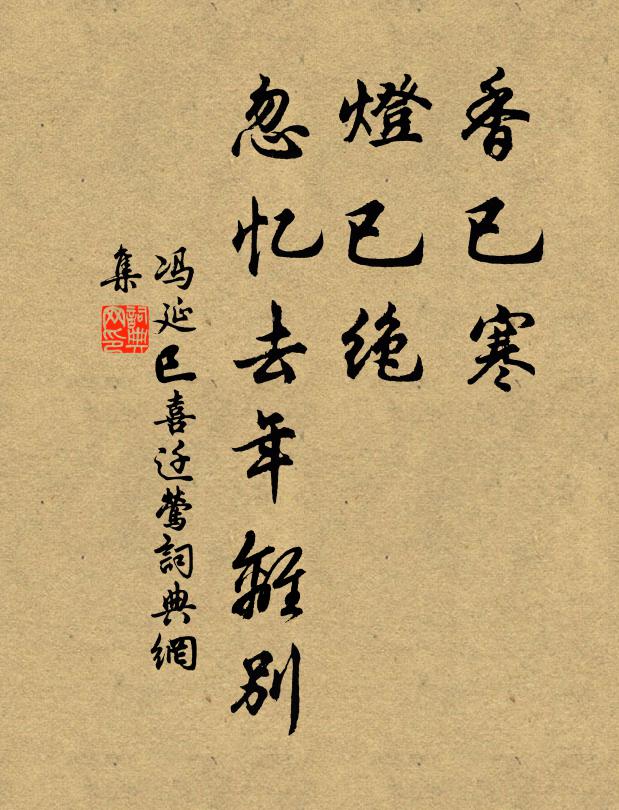 香已寒
燈已绝
忽忆去年離别
冯延巳喜迁鶯詞典網
集
詞典网印